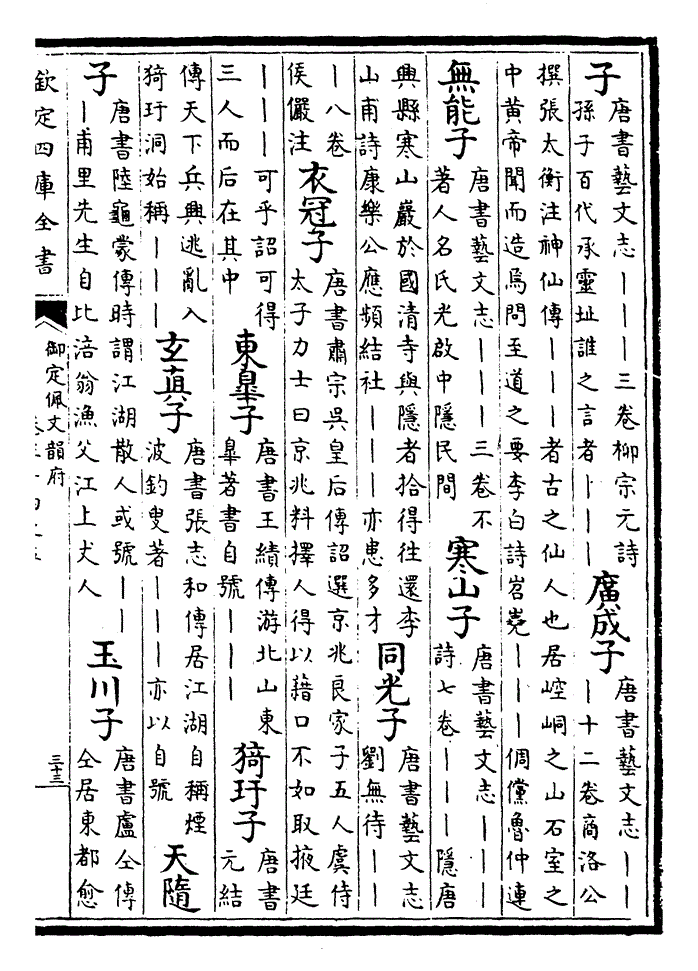 子
唐書藝文志｜｜｜三卷柳宗元詩
孫子百代承靈址誰之言者｜｜｜
廣成子
唐書藝文志｜｜
｜十二卷商洛公
撰張太衡注神仙傳｜｜｜者古之仙人也居崆峒之山石室之
中黃帝聞而造焉問至道之要李白詩岧嶤｜｜｜倜儻魯仲連
無能子
唐書藝文志｜｜｜三卷不
著人名氏光啟中隱民間
寒山子
唐書藝文志｜｜｜
詩七卷｜｜｜隱唐
興縣寒山巖於國清寺與隱者拾得往還李
山甫詩康樂公應頻結社｜｜｜亦患多才
同光子
唐書藝文志
劉無待｜｜
｜八卷
侯儼注
衣冠子
唐書肅宗吳皇后傳詔選京兆良家子五人虞侍
太子力士曰京兆料擇人得以藉口不如取掖廷
｜｜｜可乎詔可得
三人而后在其中
東皐子
唐書王績傳游北山東
皐著書自號｜｜｜
猗玗子
唐書
元結
傳天下兵興逃亂入
猗玗洞始稱｜｜｜
玄真子
唐書張志和傳居江湖自稱煙
波釣叟著｜｜｜亦以自號
天隨
子
唐書陸龜蒙傳時謂江湖散人或號｜｜
｜甫里先生自比涪翁漁父江上丈人
玉川子
唐書盧仝傳
仝居東都愈
欽定四庫全書
御定佩文韻府
三十三